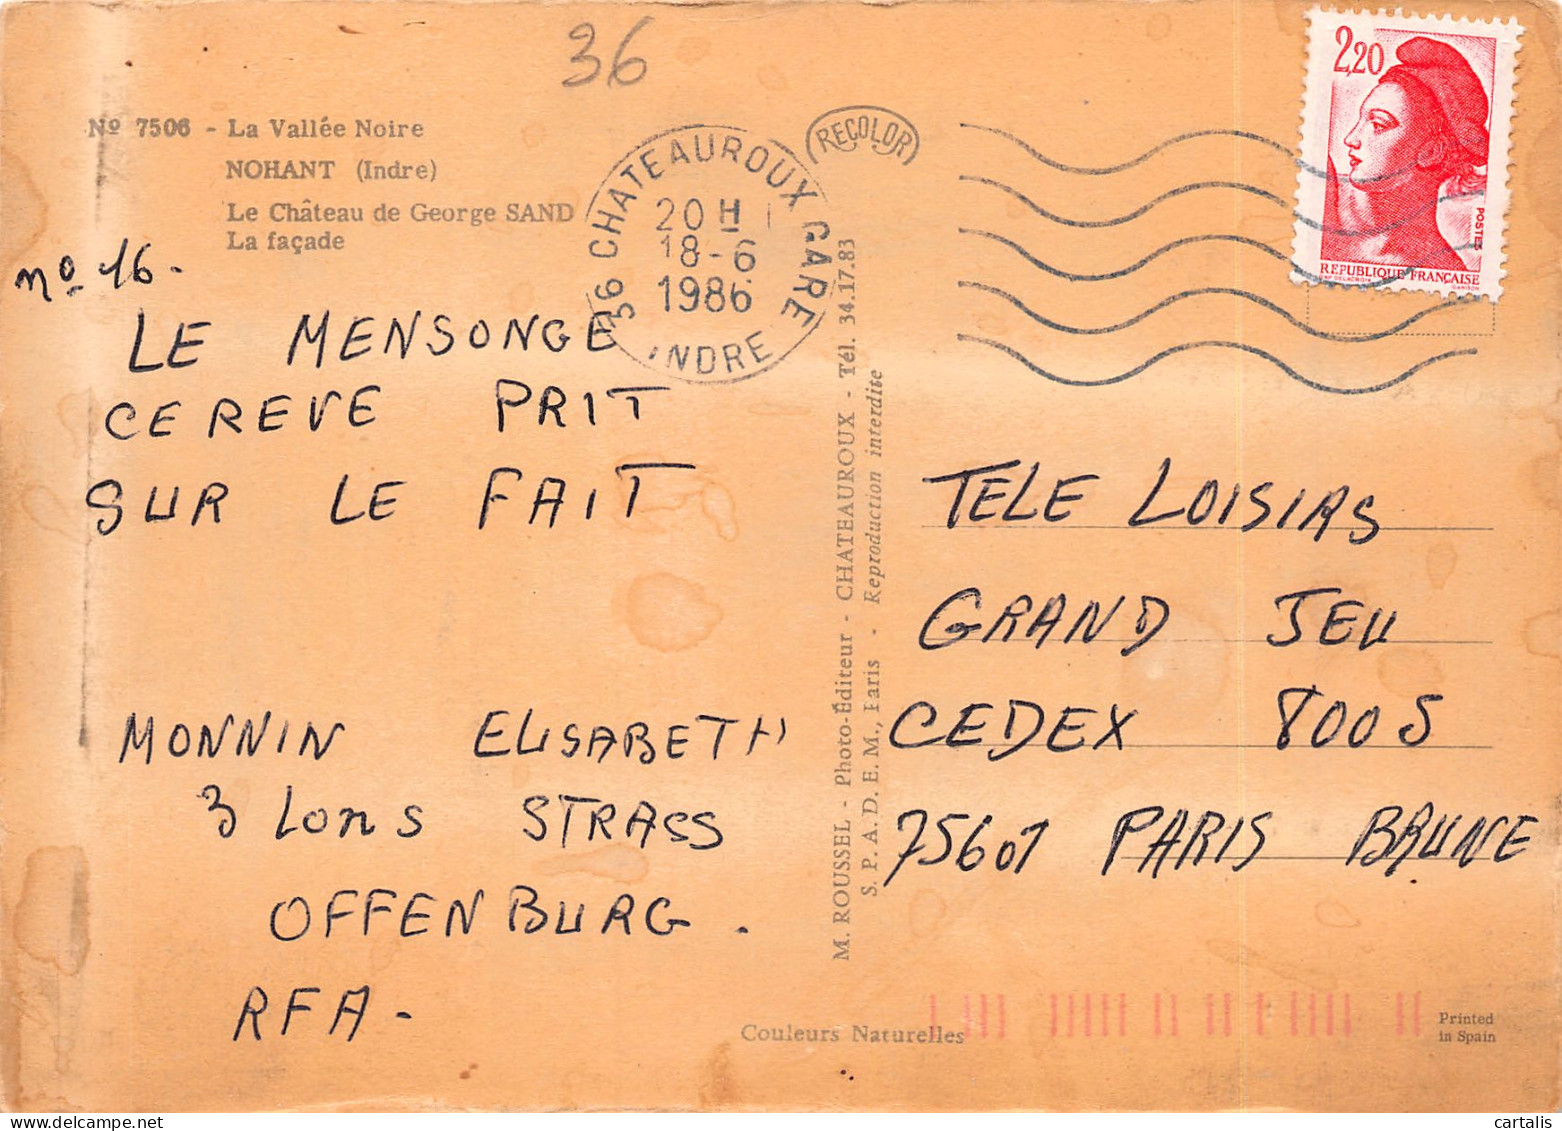 36
Nº 7506 - La Vallée Noire
NOHANT (Indre)
Le Château de George SAND
La façade
nº 16.
LE MENSONGE
CE REVE PRIT
SUR LE FAIT
MONNIN ELISABETH
3 Lons STRASS
OFFENBURG.
RFA-
36 CHATEAUROUX GARE
20 H
18-6
1986
INDRE
RECOLOR
2,20
POSTES
REPUBLIQUE FRANÇAISE
M. ROUSSEL - Photo-Éditeur - CHATEAUROUX - Tél. 34.17.83
S. P. A. D. E. M., Paris - Reproduction interdite
TELE LOISIRS
GRAND JEU
CEDEX 8005
75601 PARIS BRUNE
Couleurs Naturelles
Printed
in Spain
cartalis